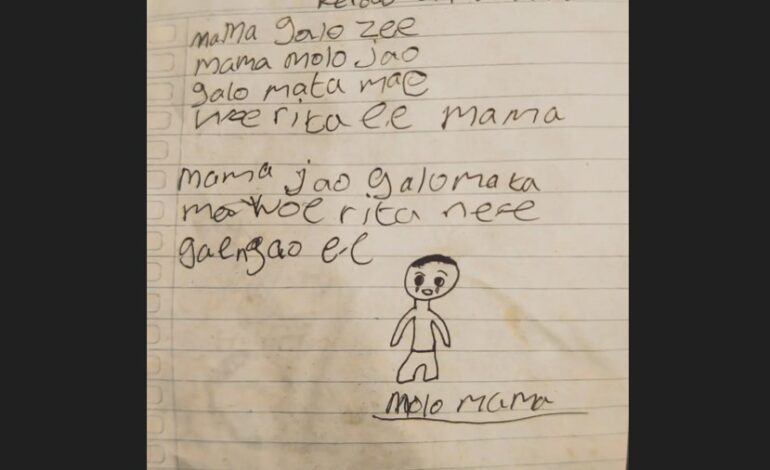 mama galo zee
mama molo jao
galo mata mae
woe rita e.e mama
mama jao galo mata
mae woe rita
gaengao e-e
molo mama